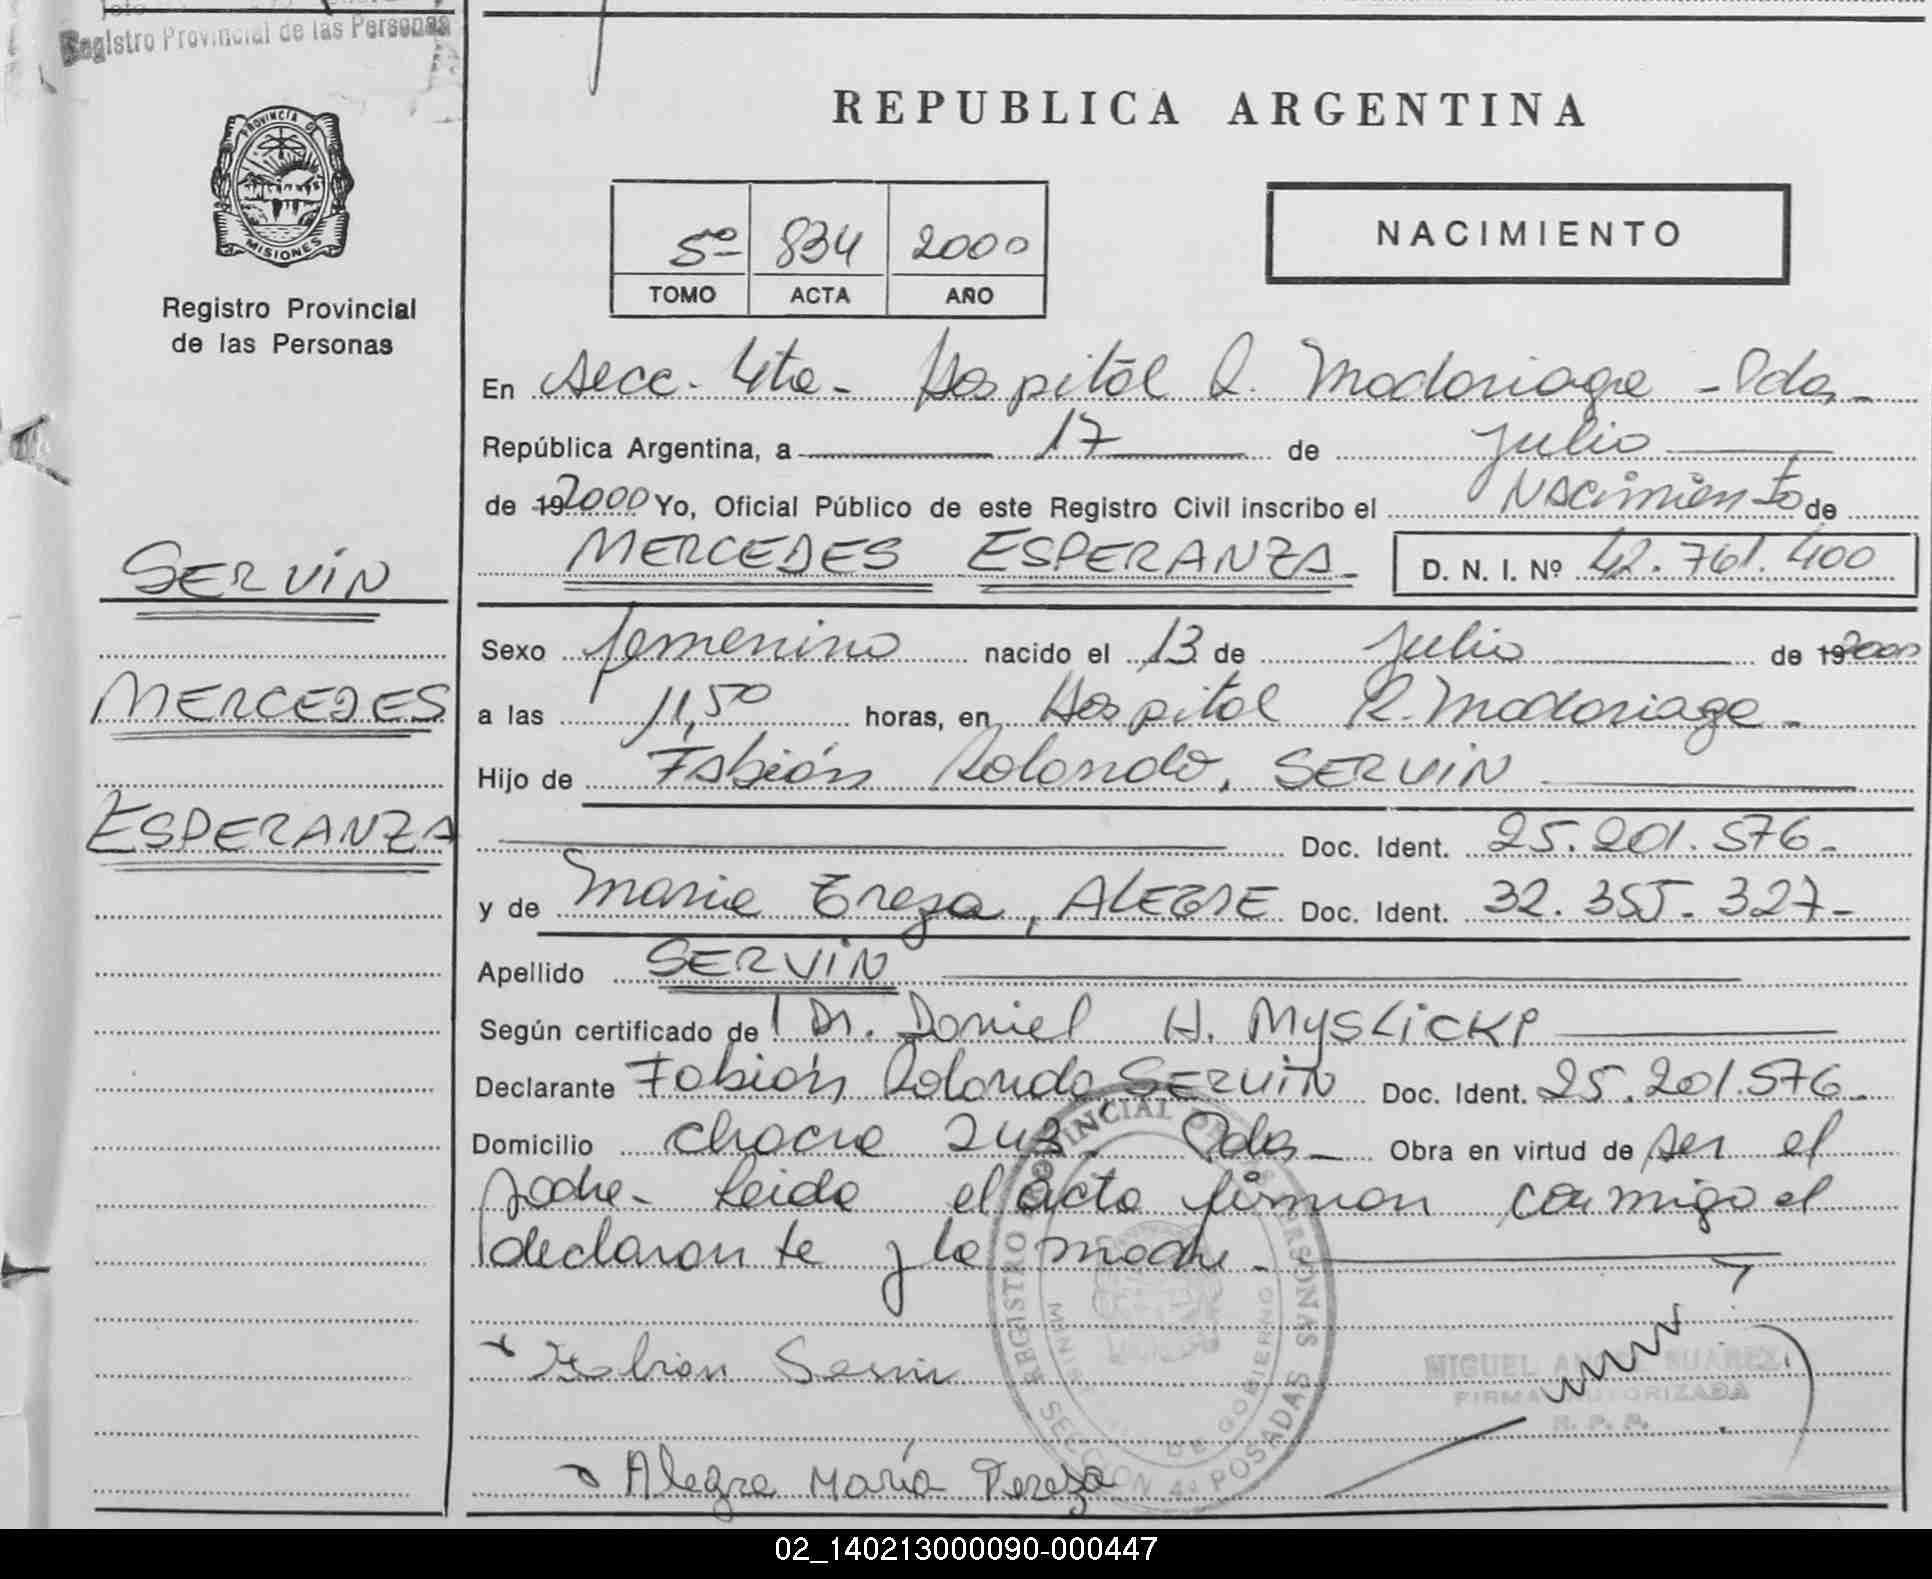 Registro Provincial de las Personas
PROVINCIA DE
MISIONES
Registro Provincial
de las Personas
SERVÍN
MERCEDES
ESPERANZA
REPUBLICA ARGENTINA
5º 834 2000
TOMO ACTA AÑO
NACIMIENTO
En Secc. 4ta - Hospital R. Madariaga - Pdas -
República Argentina, a 17 de julio
de 19 2000 Yo, Oficial Público de este Registro Civil inscribo el Nacimiento de
MERCEDES ESPERANZA - D. N. I. Nº 42.761.400
Sexo femenino nacido el 13 de julio de 19 2000
a las 11,50 horas, en Hospital R. Madariaga -
Hijo de Fabián Rolando, SERVIN
Doc. Ident. 25.201.576 -
y de María Tereza, ALEGRE Doc. Ident. 32.355.327 -
Apellido SERVIN
Según certificado de Dr. Daniel H. MYSLICKP
Declarante Fabián Rolando SERVIN Doc. Ident. 25.201.576 -
Domicilio chacra 243 - Pdas - Obra en virtud de ser el
padre - Leida el acta firman conmigo el
declarante y la madre -
REGISTRO PROVINCIAL DE LAS PERSONAS
DE GOBIERNO
SECCION 4ª POSADAS
Fabian Servin
MIGUEL ANGEL SUAREZ
FIRMA AUTORIZADA
R. P. P.
Alegre María Tereza
02_140213000090-000447